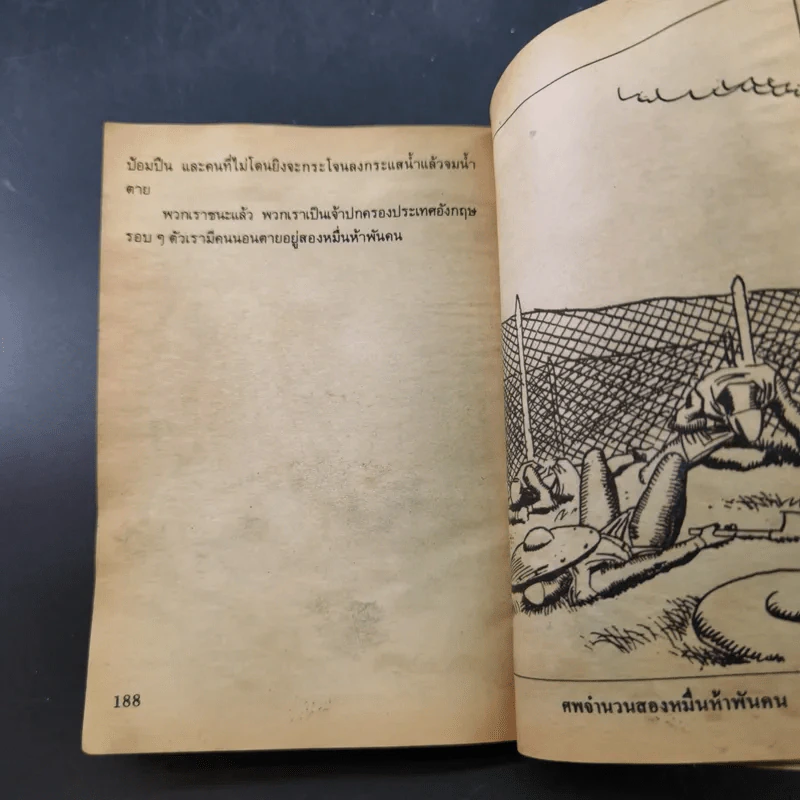 ป้อมปืน และคนที่ไม่โดนยิงจะกระโจนลงกระแสน้ำแล้วจมน้ำ
ตาย
พวกเราชนะแล้ว พวกเราเป็นเจ้าปกครองประเทศอังกฤษ
รอบ ๆ ตัวเรามีคนนอนตายอยู่สองหมื่นห้าพันคน
188
ศพจำนวนสองหมื่นห้าพันคน